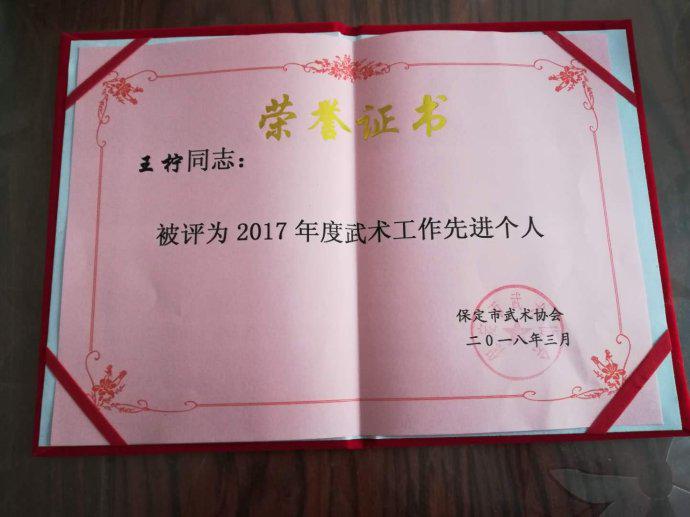 荣誉证书
王柠同志：
被评为2017年度武术工作先进个人
保定市武术协会
二〇一八年三月